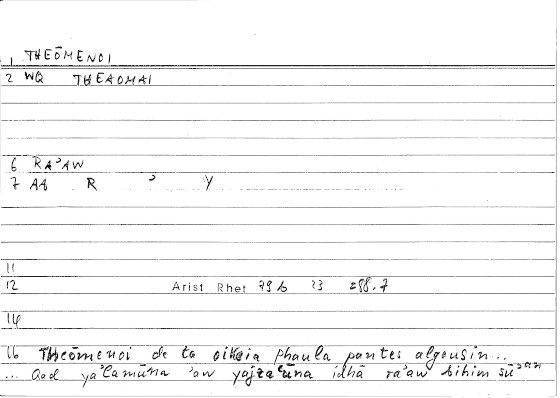 1 THEŌMENOI
2 WQ THEAOMAI
6 RAʾAW
7 AA R ʾ Y
11
12 Arist Rhet 79 b 23 288.7
14
16 Theōmenoi de ta oikeia phaula pantes algousin...
... qad yaʾlamūna ʾaw yajzaʿūna idhā raʾaw bihim sūʾan